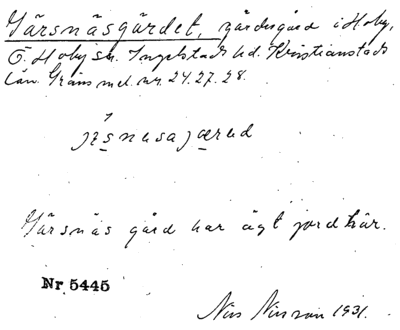 Gärsnäsgärdet, gärdesgård i Hoby,
Ö. Hoby sn. Ingelstads hd. Kristianstads
län. Gräns med nr. 24. 27. 28.
Gärsnäs gård har ägt jord här.
Nr 5445
Nils Nilsson 1931.